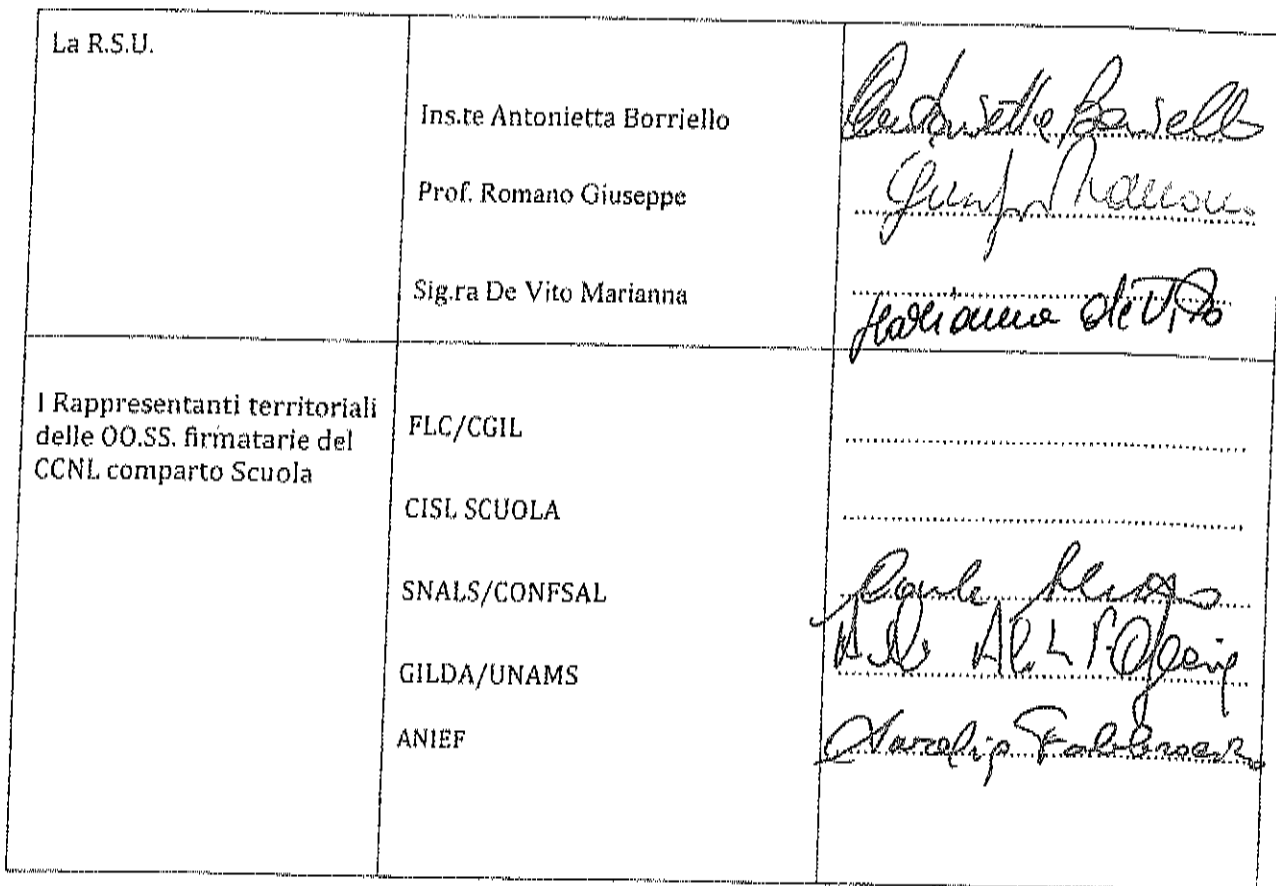 La R.S.U.
Ins.te Antonietta Borriello
Antonietta Borriello
Prof. Romano Giuseppe
Sig.ra De Vito Marianna
Marianna de Vito
I Rappresentanti territoriali
delle OO.SS. firmatarie del
CCNL comparto Scuola
FLC/CGIL
CISL SCUOLA
SNALS/CONFSAL
GILDA/UNAMS
ANIEF